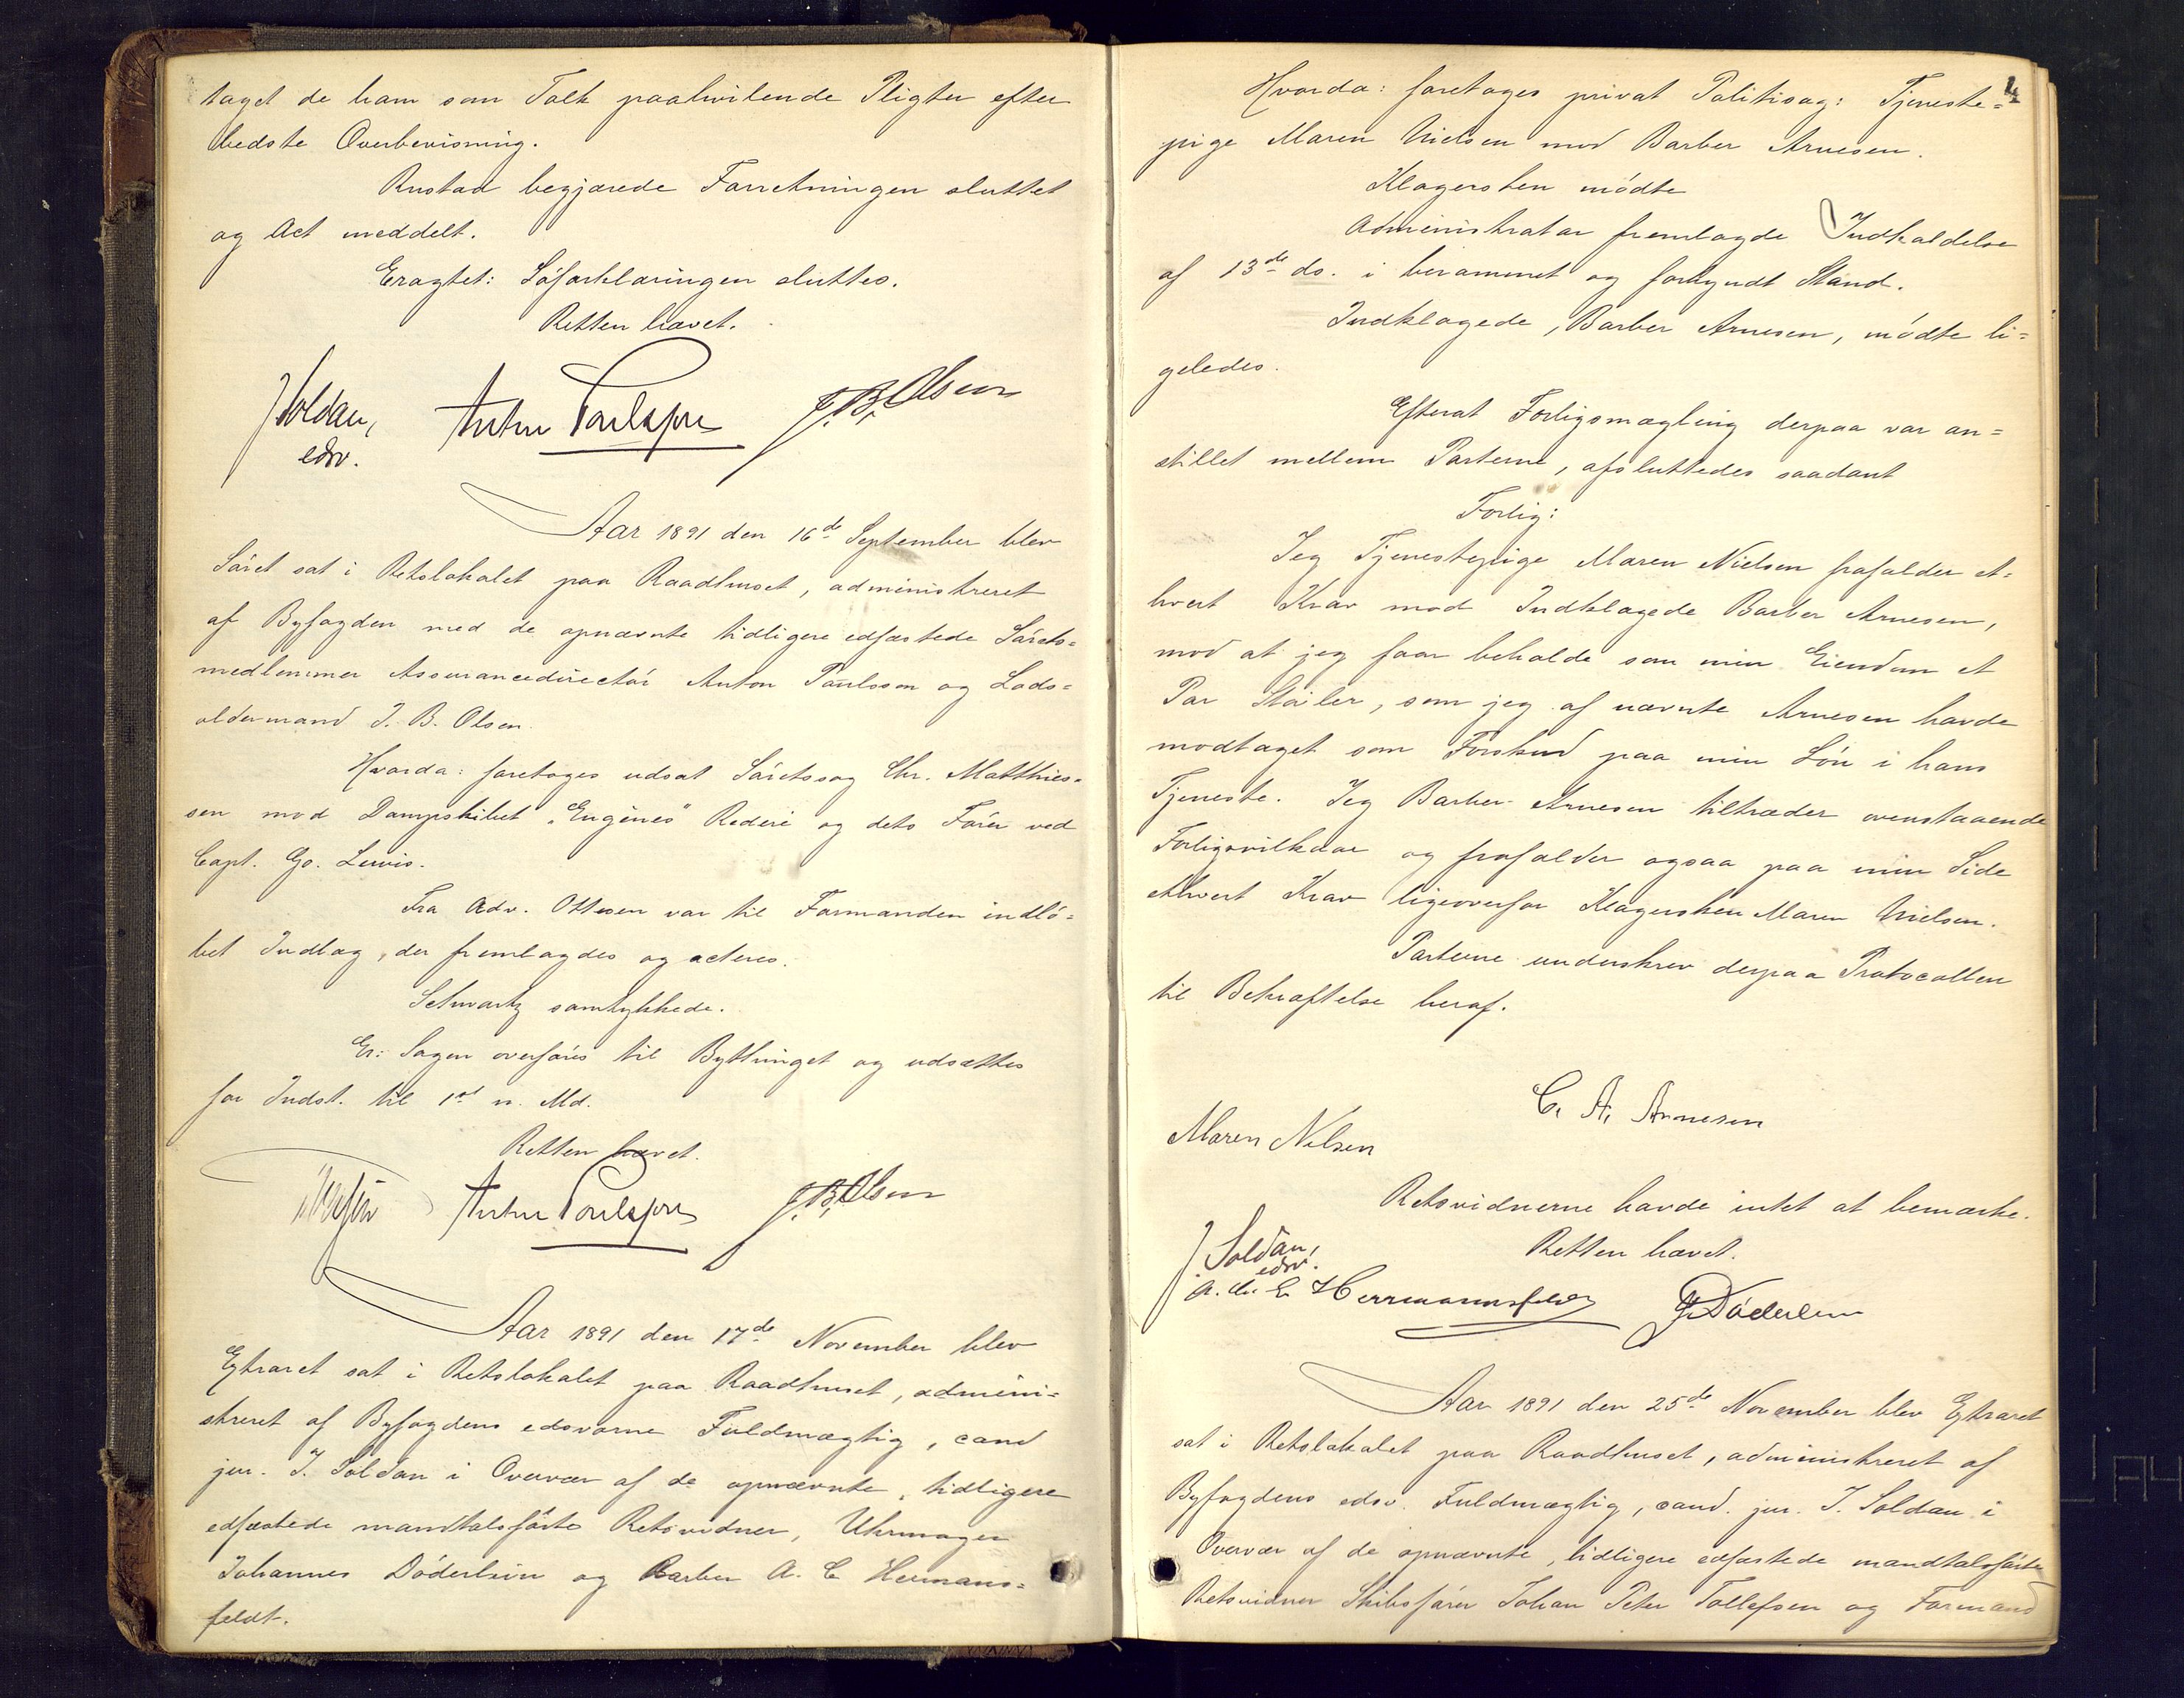 taget de ham som Tolk paahvilende Pligter efter
bedste Overbevisning.
Rustad begjærede Forretningen sluttet
og Act meddelt.
Eragtet: Söforklaringen sluttes.
Retten hævet.
J Soldan,
edsv.
Anton Poulsson
J. B. Olsen
Aar 1891 den 16de September blev
Söret sat i Retslokalet paa Raadhuset, administreret
af Byfogden med de opnævnte tidligere edfæstede Sörets=
medlemmer Assurancedirectör Anton Poulsson og Lods=
oldermand J. B. Olsen.
Hvorda: foretoges udsat Söretssag Chr. Matthies=
sen mod Dampskibet "Engines" Rederi og dets Förer ved
Capt. Go. Lewis.
Fra Adv. Ottesen var til Formanden indlö=
bet Indlæg, der fremlagdes og acteres.
Schwartz samtykkede.
Er: Sagen overföres til Bythinget og udsættes
for Indst. til 1st n. Md.
Retten hævet.
Anton Poulsson
J. B. Olsen
Aar 1891 den 17de November blev
Extraret sat i Retslokalet paa Raadhuset, admini=
streret af Byfogdens edsvorne Fuldmægtig, cand
jur. J. Soldan i Overvær af de opnævnte, tidligere
edfæstede mandtalsförte Retsvidner, Uhrmager
Johannes Döderlein og Barber A. C Hermans=
feldt.
4
Hvorda: foretoges privat Politisag: Tjeneste=
pige Maren Nielsen mod Barber Arnesen.
Klagersken mödte
Administrator fremlagde Indkaldelse
af 13de ds. i berammet og forkyndt Stand.
Indklagede, Barber Arnesen, mödte li=
geledes.
Efterat Forligsmægling derpaa var an=
stillet mellem Parterne, afsluttedes saadant
Forlig:
Jeg Tjenestepige Maren Nielsen frafalder et=
hvert Krav mod Indklagede Barber Arnesen,
mod at jeg faar beholde som min Eiendom et
Par Stövler, som jeg af nævnte Arnesen havde
modtaget som Forskud paa min Lön i hans
Tjeneste. Jeg Barber Arnesen tiltræder ovenstaaende
Forligsvilkaar og frafalder ogsaa paa min Side
ethvert Krav ligeoverfor Klagersken Maren Nielsen.
Parterne underskrev derpaa Protocollen
til Bekræftelse heraf.
C. A. Arnesen
Maren Nilsen
Retsvidnerne havde intet at bemærke.
Retten hævet.
J. Soldan,
edsv.
A. Chr. E Herrmannsfeldt
J. Döderlein
Aar 1891 den 25de November blev Extraret
sat i Retslokalet paa Raadhuset, administreret af
Byfogdens edsv. Fuldmægtig, cand. jur. J. Soldan i
Overvær af de opnævnte, tidligere edfæstede mandtalsförte
Retsvidner Skibsförer Johan Peter Tollefsen og Formand